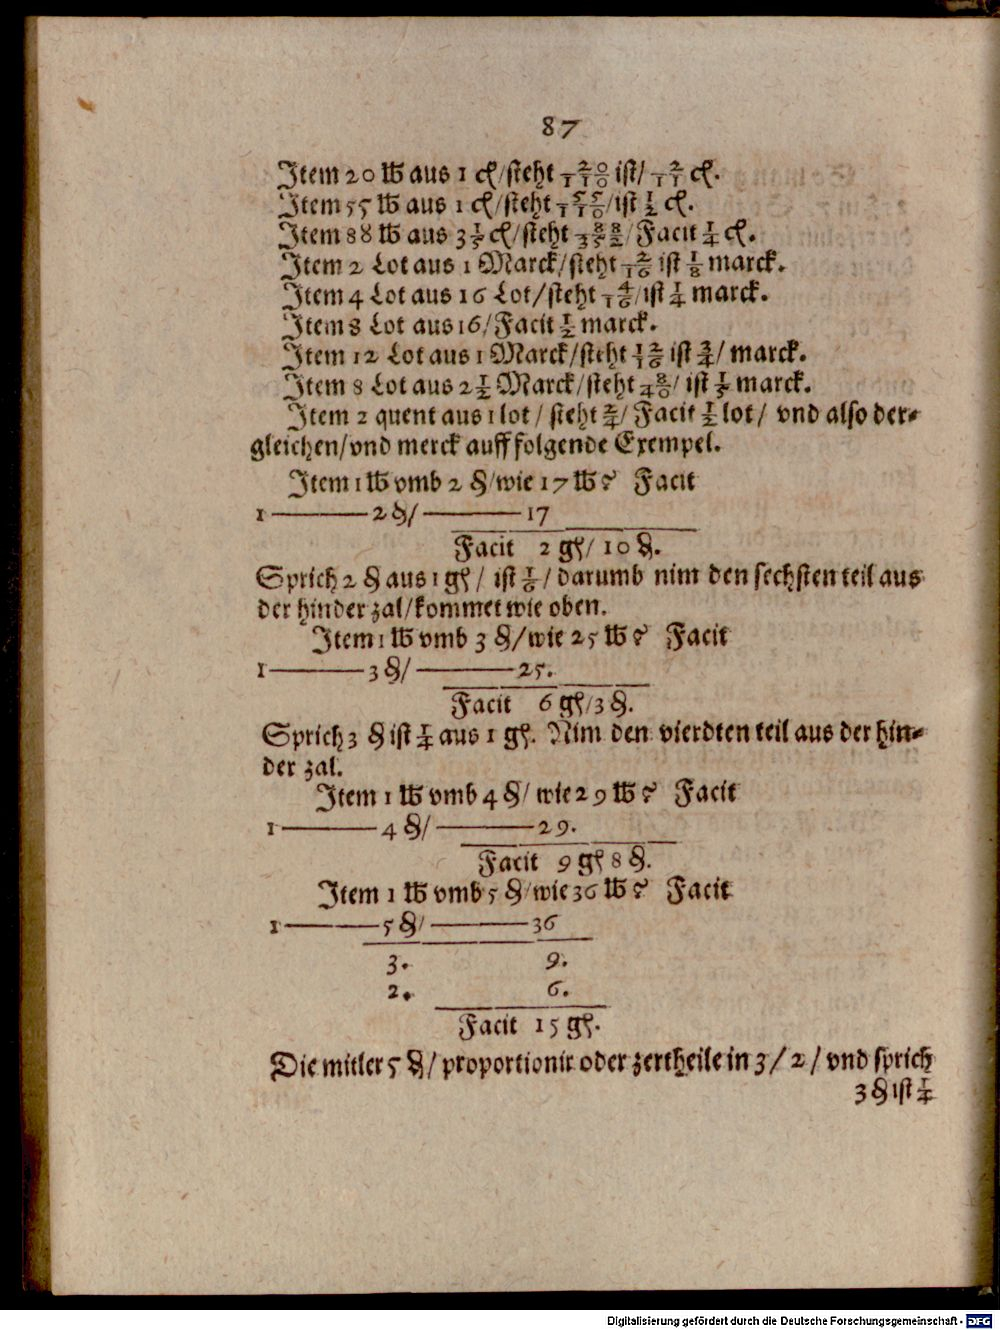 87
Item 20 ℔ aus 1 cł/steht 20/110 ist/ 2/11 cł.
Item 55 ℔ aus 1 cł/steht 55/110/ist 1/2 cł.
Item 88 ℔ aus 3 1/5 cł/steht 88/352/Facit 1/4 cł.
Item 2 Lot aus 1 Marck/steht 2/16 ist 1/8 marck.
Item 4 Lot aus 16 Lot/steht 4/16/ist 1/4 marck.
Item 8 Lot aus 16/Facit 1/2 marck.
Item 12 Lot aus 1 Marck/steht 12/16 ist 3/4/ marck.
Item 8 Lot aus 2 1/2 Marck/steht 8/40/ ist 1/5 marck.
Item 2 quent aus 1 lot/ steht 2/4/ Facit 1/2 lot/ vnd also der⸗
gleichen/vnd merck auff folgende Exempel.
Item 1 ℔ vmb 2 ₰/wie 17 ℔? Facit
1 ——— 2 ₰/ ——— 17
Facit 2 gł/ 10 ₰.
Sprich 2 ₰ aus 1 gł/ ist 1/6/ darumb nim den sechsten teil aus
der hinder zal/kommet wie oben.
Item 1 ℔ vmb 3 ₰/wie 25 ℔? Facit
1 ——— 3 ₰/ ——— 25.
Facit 6 gł/3 ₰.
Sprich 3 ₰ ist 1/4 aus 1 gł. Nim den vierdten teil aus der hin⸗
der zal.
Item 1 ℔ vmb 4 ₰/ wie 29 ℔? Facit
1 ——— 4 ₰/ ——— 29.
Facit 9 gł 8 ₰.
Item 1 ℔ vmb 5 ₰/wie 36 ℔? Facit
1 ——— 5 ₰/ ——— 36
3. 9.
2. 6.
Facit 15 gł.
Die mitler 5 ₰/ proportionir oder zertheile in 3/ 2/ vnd sprich
3 ₰ ist 1/4
Digitalisierung gefördert durch die Deutsche Forschungsgemeinschaft - DFG